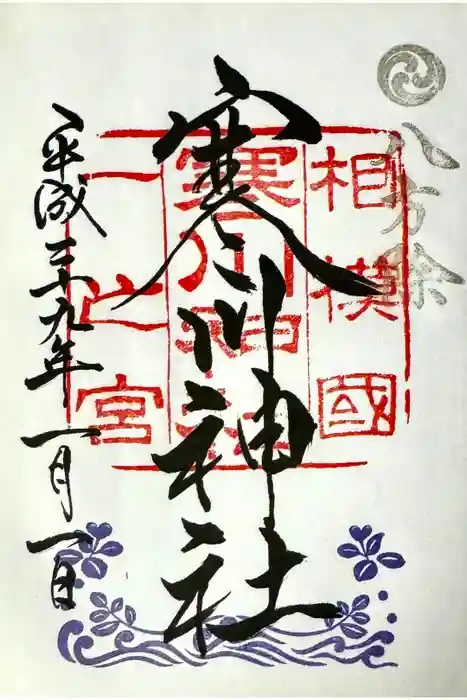 八方除
相模國
寒川神社
一之宮
寒川神社
平成二十九年一月一日